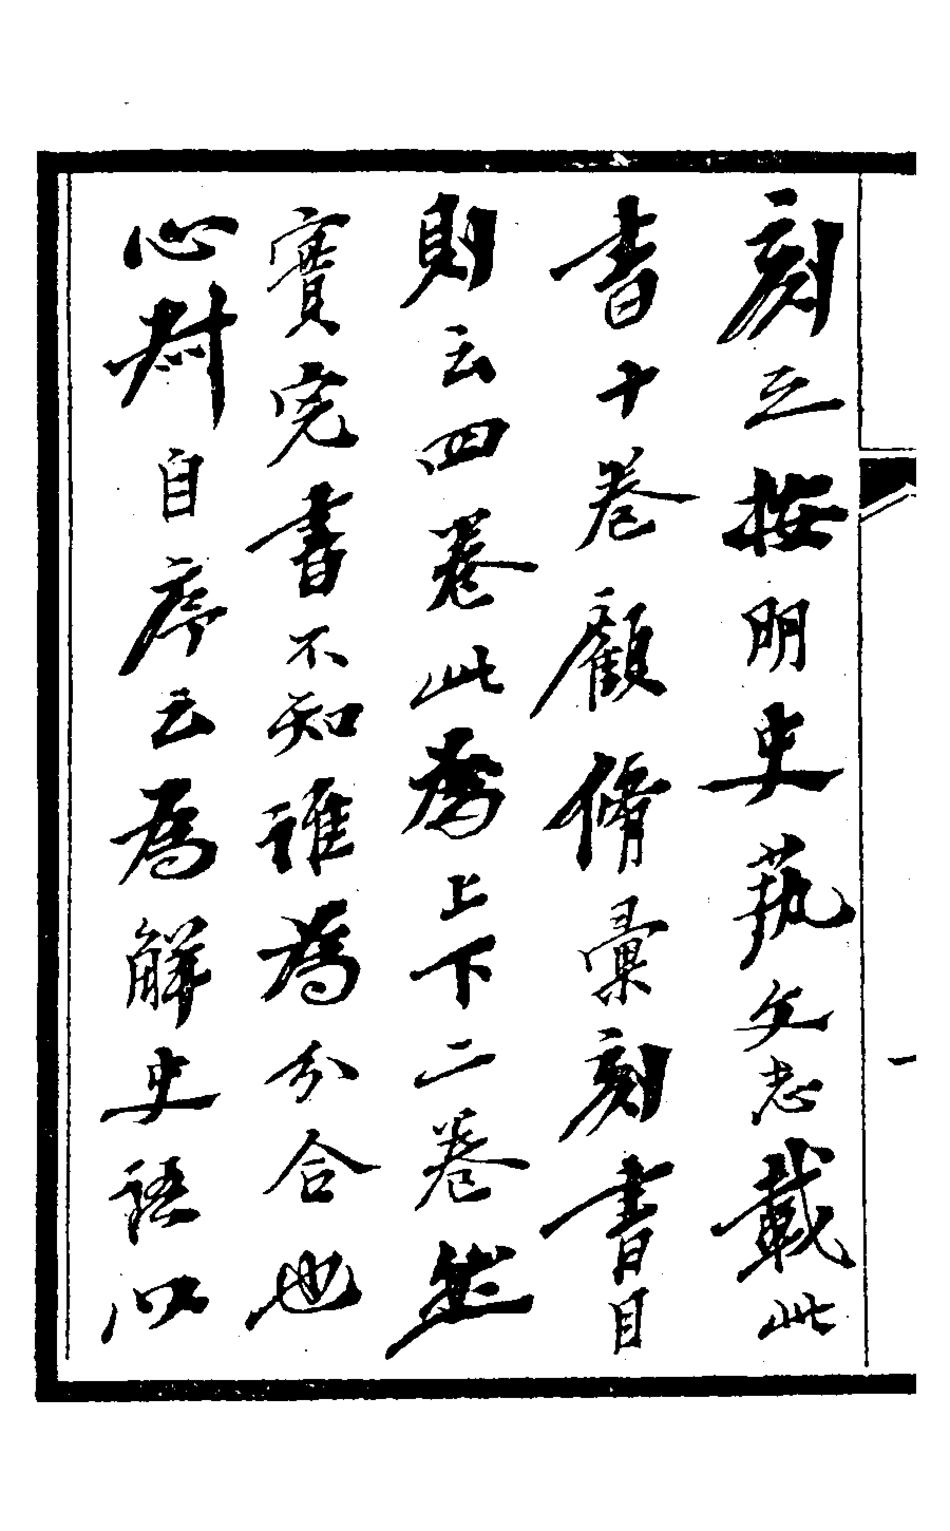 刻之按明史藝文志載此
書十卷顧脩彙刻書目
則云四卷此為上下二卷然
實完書不知誰為分合也
心尌自序云為解史語以